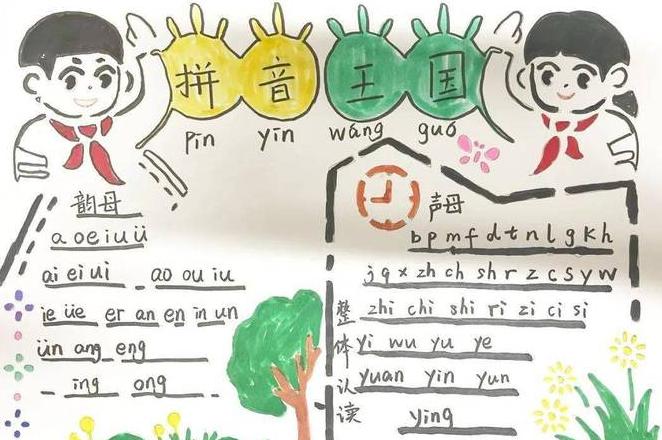 拼音王国
pīn yīn wáng guó
韵母
a o e i u ü
ai ei ui ao ou iu
ie üe er an en in un
ün ang eng
ing ong
声母
b p m f d t n l g k h
j q x zh ch sh r z c s y w
整体认读
zhi chi shi ri zi ci si
yi wu yu ye
yuan yin yun
ying